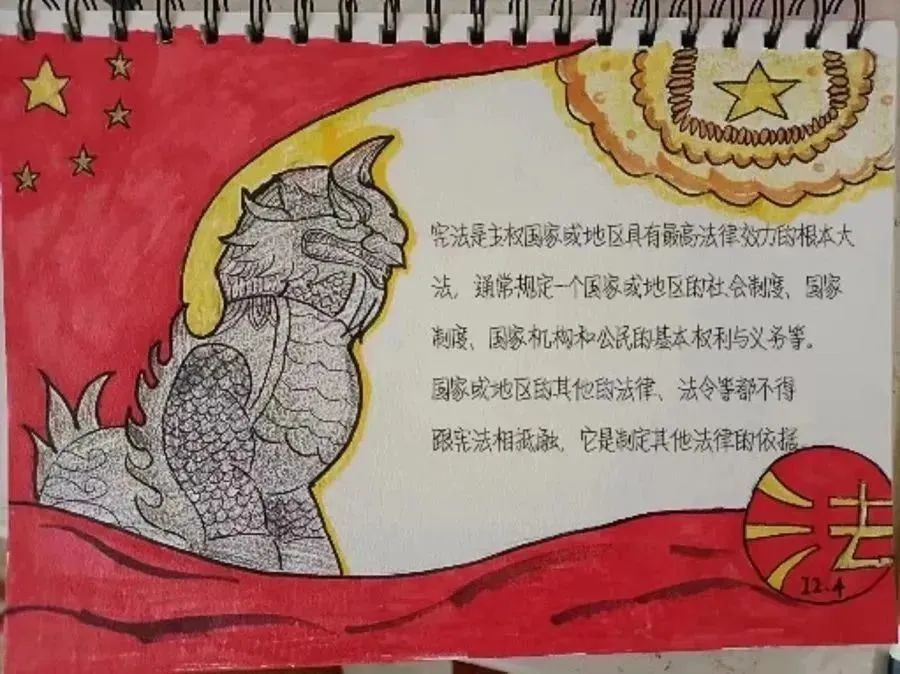 宪法是主权国家或地区具有最高法律效力的根本大
法，通常规定一个国家或地区的社会制度、国家
制度、国家机构和公民的基本权利与义务等。
国家或地区的其他的法律、法令等都不得
跟宪法相抵融，它是制定其他法律的依据
法
12.4